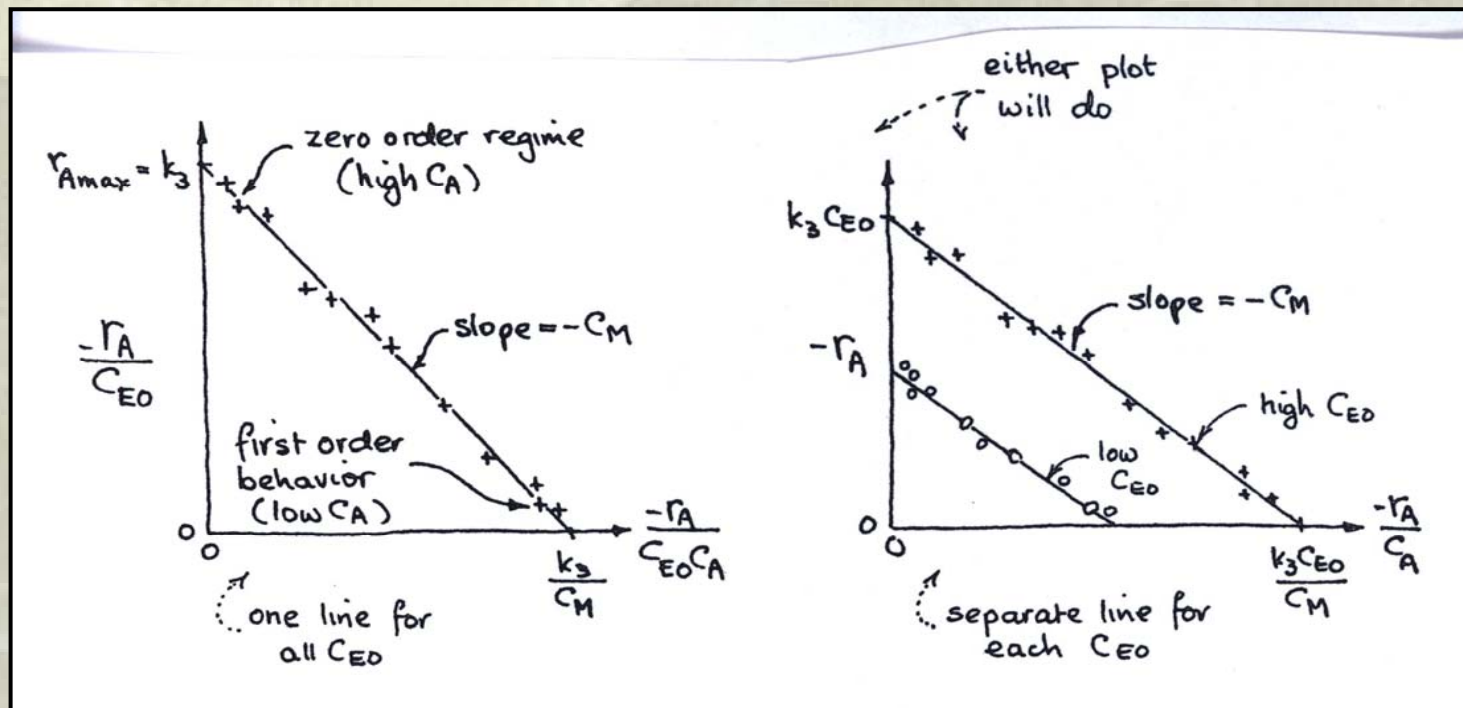 either plot
will do
zero order regime
(high C_A)
r_Amax = k_3
-r_A
C_EO
slope = -C_M
first order
behavior
(low C_A)
0
0
k_3
C_M
-r_A
C_EO C_A
one line for
all C_EO
k_3 C_EO
-r_A
slope = -C_M
high C_EO
low
C_EO
0
0
k_3 C_EO
C_M
-r_A
C_A
separate line for
each C_EO